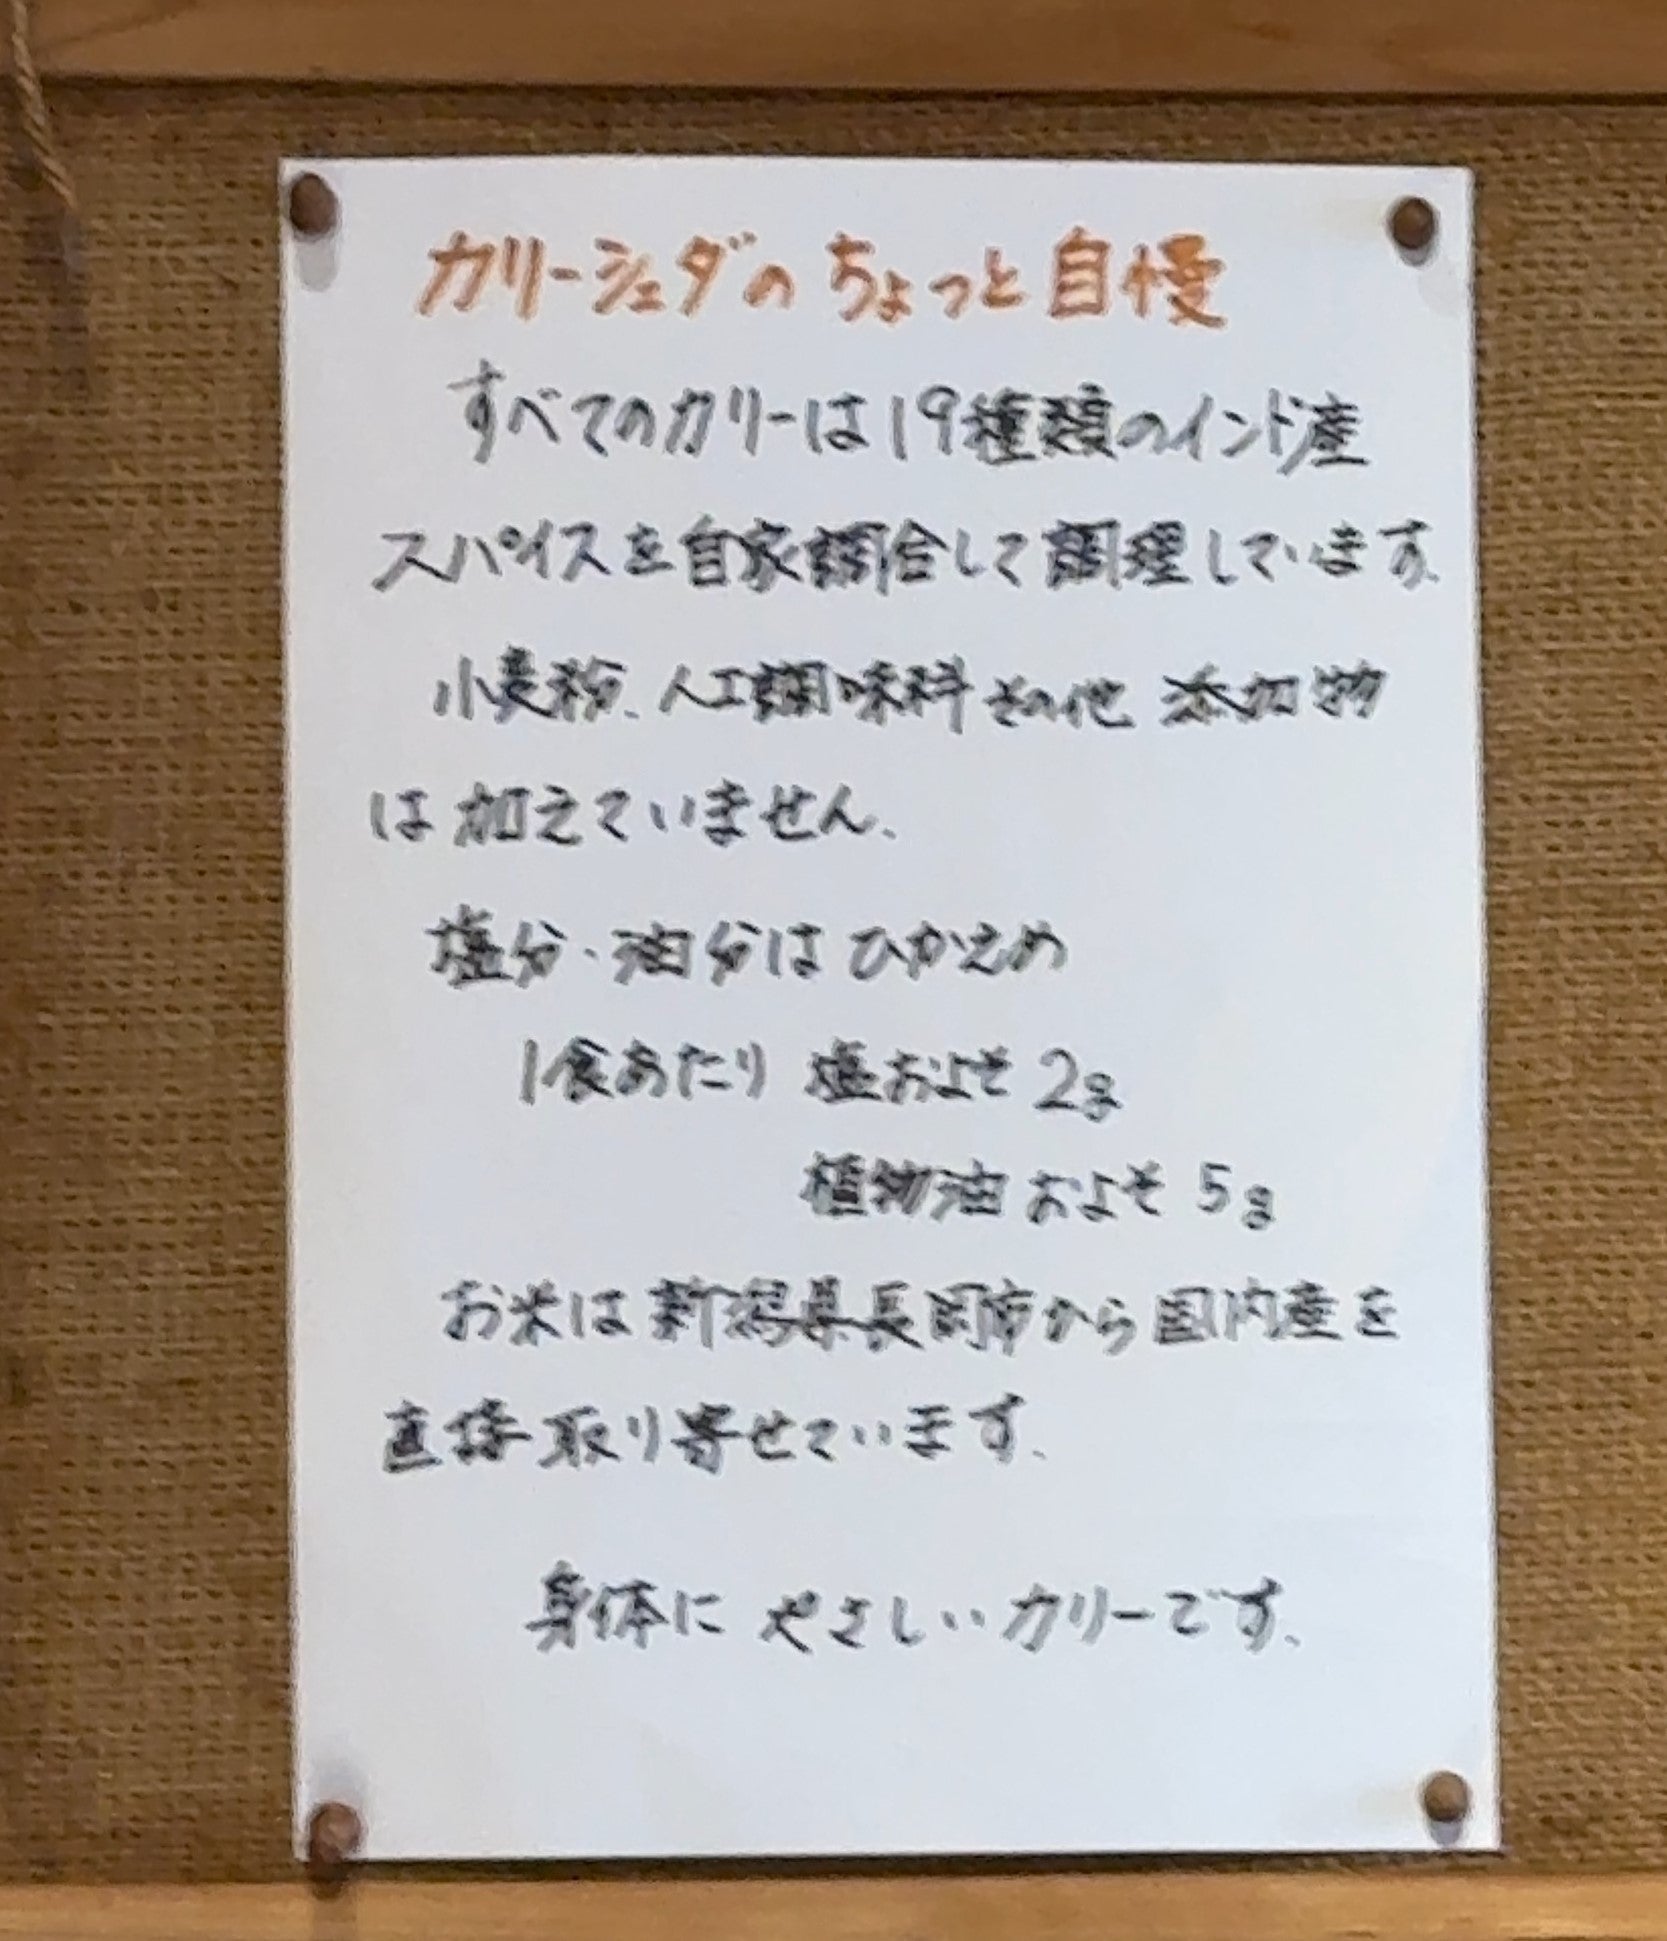 カリーシェダのちょっと自慢
すべてのカリーは19種類のインド産
スパイスを自家調合して調理しています。
小麦粉、人工調味料その他 添加物
は加えていません。
塩分・油分はひかえめ
1食あたり 塩およそ 2g
植物油およそ 5g
お米は新潟県長岡市から国内産を
直接取り寄せています。
身体に やさしいカリーです。